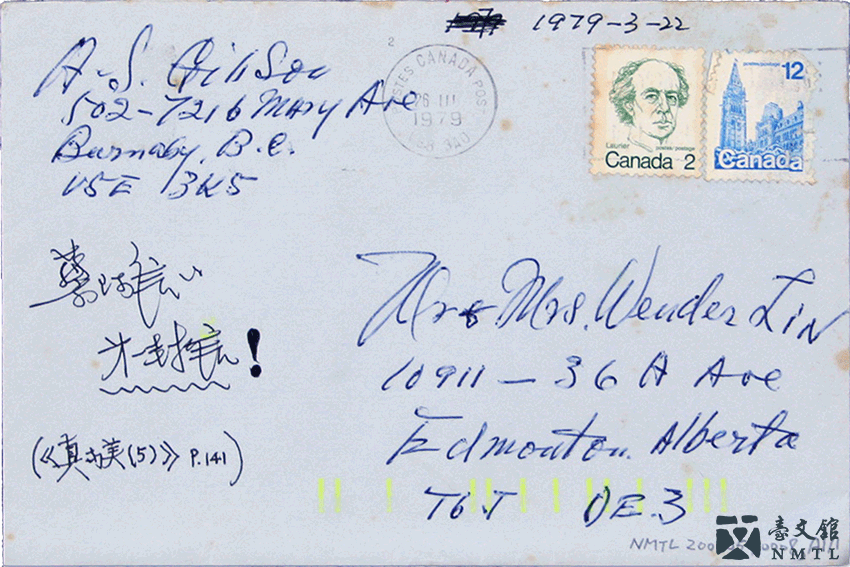 1979 1979-3-22
A. S. Gibson
502-7216 Mary Ave
Burnaby, B.C.
V5E 3K5
POSTES CANADA POST
26 III
1979
3A0
Laurier postes/postage
Canada 2
12
Canada
第一封信!
(《真与美(5)》P.141)
Mr & Mrs. Wender LIN
10911-36 A Ave
Edmonton. Alberta
T6J 0E3
臺文館
NMTL
NMTL 200